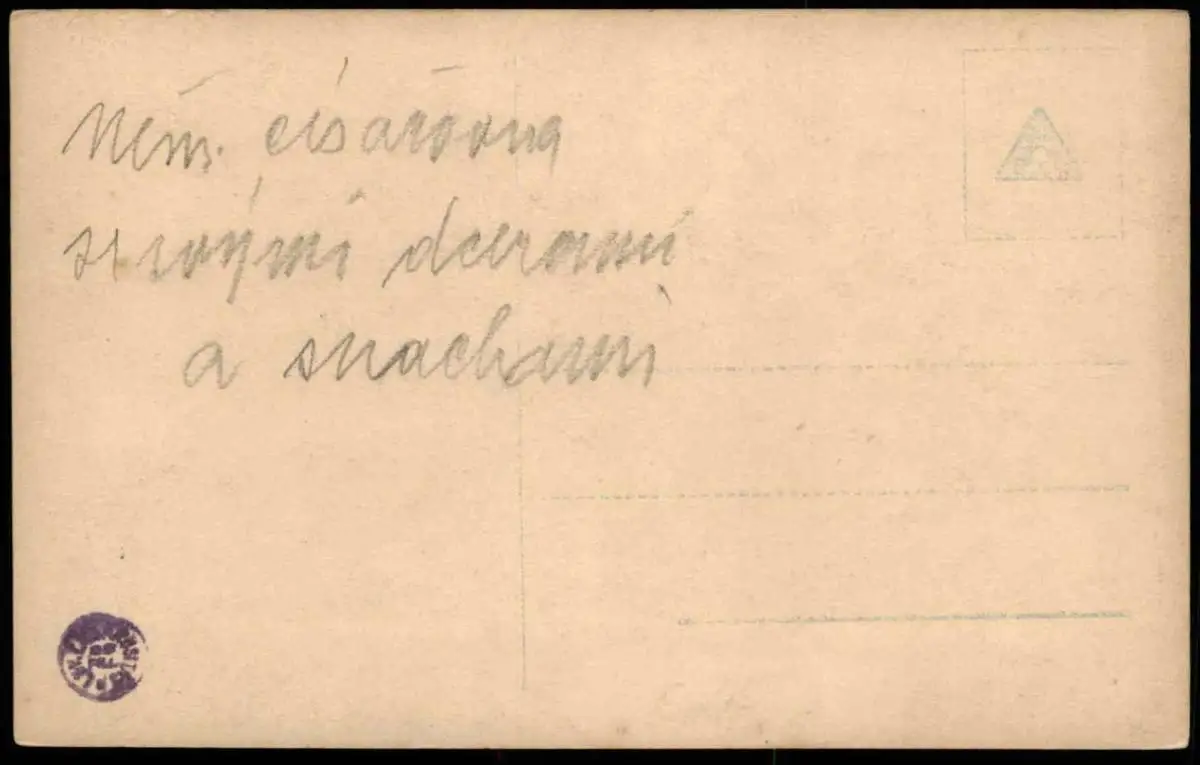 Něm. císařovna
se svými dcerami
a snachami